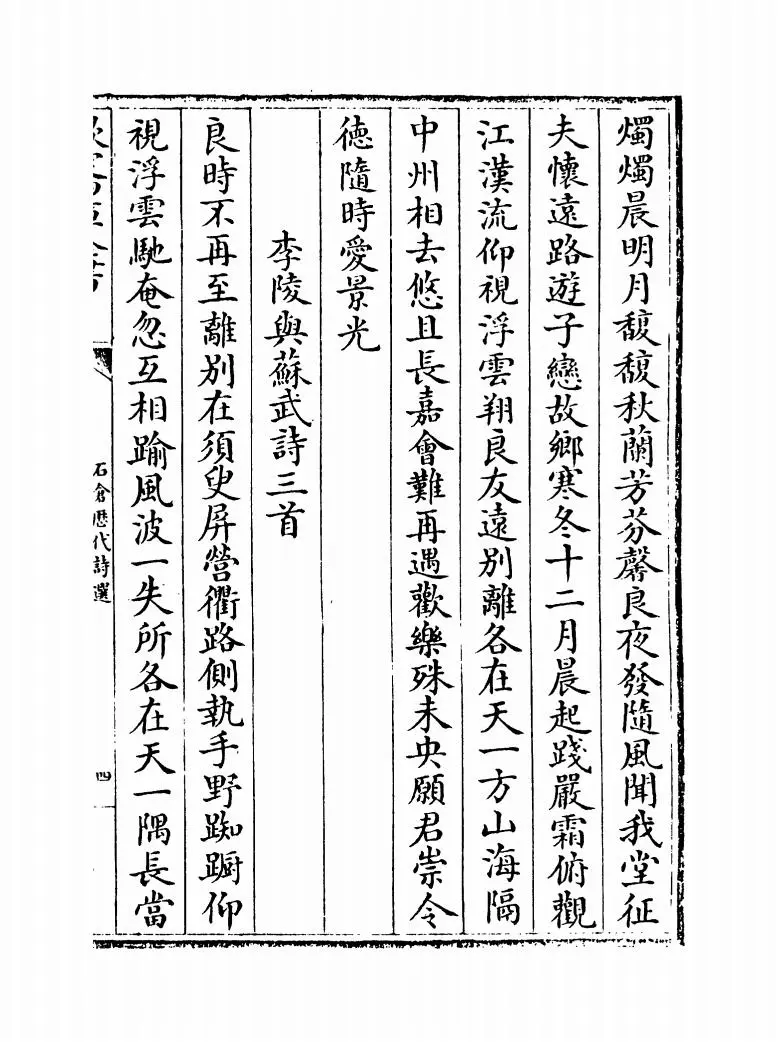 燭燭晨明月馥馥秋蘭芳芬馨良夜發隨風聞我堂征
夫懷遠路遊子戀故鄉寒冬十二月晨起踐嚴霜俯觀
江漢流仰視浮雲翔良友遠别離各在天一方山海隔
中州相去悠且長嘉會難再遇歡樂殊未央願君崇令
德隨時愛景光
李陵與蘇武詩三首
良時不再至離别在須臾屏營衢路側執手野踟蹰仰
視浮雲馳奄忽互相踰風波一失所各在天一隅長當
石倉歴代詩選
四